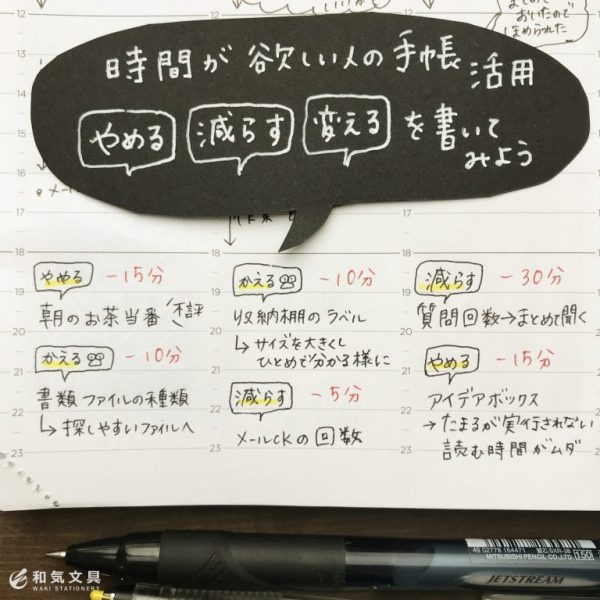 おいたので
ほめられた
時間が欲しい人の手帳活用
やめる 減らす 変える を書いて
みよう
メール
12
13
14
15
16
17
18
19
20
21
22
23
やめる -15分
朝のお茶当番 不評
かえる -10分
書類ファイルの種類
↳探しやすいファイルへ
18
19
20
21
22
23
かえる -10分
収納棚のラベル
↳サイズを大きくし
ひとめで分かる様に
減らす -5分
メールckの回数
17
18
19
20
21
22
23
減らす -30分
質問回数→まとめて聞く
やめる -15分
アイデアボックス
→たまるが実行されない
読む時間がムダ
49 02778 164471
替芯:SXR-38
MITSUBISHI PENCIL CO.,LTD.
150
JETSTREAM
和気文具
WAKI STATIONERY